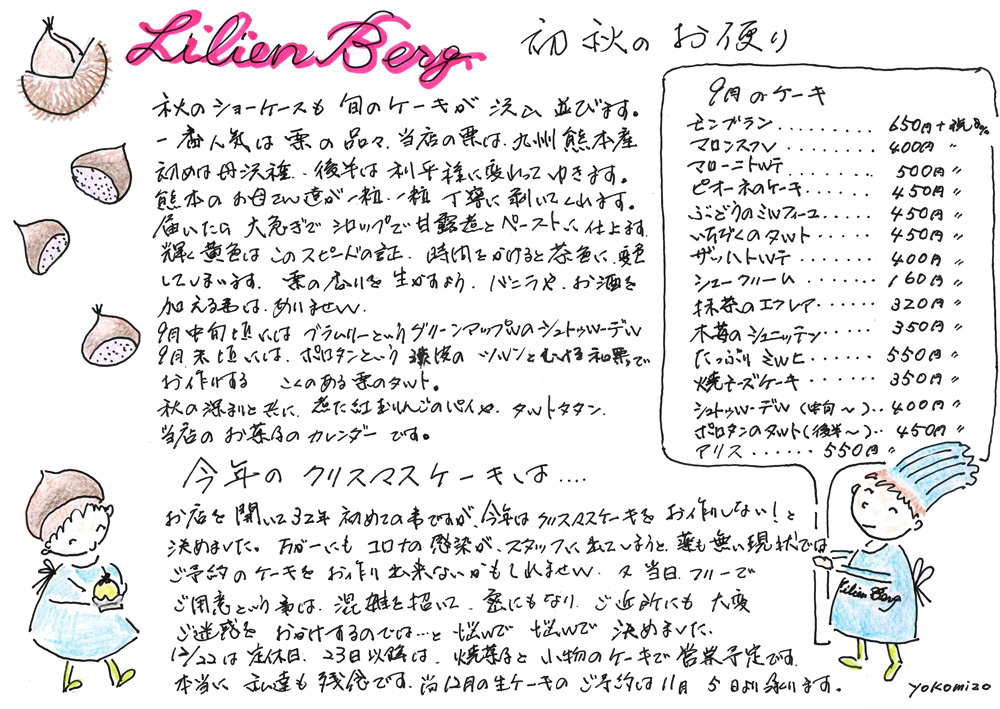 Lilien Berg 初秋のお便り
秋のショーケースも 旬のケーキが 沢山 並びます。
一番人気は 栗の品々、当店の栗は、九州 熊本産
初めは丹沢種、後半は利平種に変わってゆきます。
熊本のお母さん達が一粒、一粒 丁寧に剥いてくれます。
届いたら 大急ぎで シロップで甘露煮とペーストに仕上ます。
輝く黄色は このスピードの証、時間をかけると茶色に、変色
してしまいます。栗の香りを生かすよう、バニラや、お酒を
加える事は、ありません。
9月中旬頃には ブラムリーというグリーンアップルのシュトゥルーデル
9月末頃には、ポロタンという 渋皮の ツルンとむける和栗で
お作りする こくのある栗のタルト。
秋の深まりと共に、煮た紅玉りんごのパイや、タルトタタン、
当店のお菓子のカレンダーです。
9月のケーキ
モンブラン......... 650円+税8%
マロンスフレ ........ 400円 〃
マローニトルテ ...... 500円 〃
ピオーネのケーキ..... 450円 〃
ぶどうのミルフィーユ.... 450円 〃
いちぢくのタルト..... 450円 〃
ザッハトルテ ....... 400円 〃
シュークリーム ...... 160円 〃
抹茶のエクレア...... 320円 〃
木苺のシュニッテン..... 350円 〃
たっぷり ミルヒ ...... 550円 〃
焼チーズケーキ ...... 350円 〃
シュトゥルーデル(中旬〜).. 400円 〃
ポロタンのタルト(後半〜).. 450円 〃
アリス ...... 550円 〃
今年の クリスマスケーキは....
お店を開いて32年 初めての事ですが、今年はクリスマスケーキを お作りしない!と
決めました。万が一にも コロナの感染が、スタッフに出てしまうと、薬も無い現状では
ご予約のケーキを お作り出来ないかもしれません、又 当日、フリーで
ご用意という事は、混雑を招いて、密にもなり、ご近所にも 大変
ご迷惑を おかけするのでは…と 悩んで 悩んで 決めました。
12/22は定休日、23日以降は、焼菓子と 小物のケーキで営業予定です。
本当に 私達も 残念です。尚12月の生ケーキの ご予約は11月 5日より承ります。
Lilien Berg
yokomizo